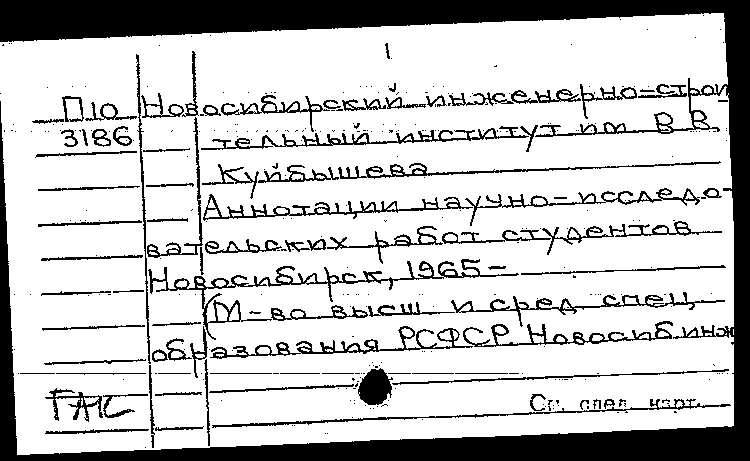 1
П10 Новосибирский инженерно-строи
3186 тельный институт им В В
Куйбышева
Аннотации научно-исследо-
вательских работ студентов
Новосибирск, 1965-
(М-во высш и сред спец
образования РСФСР. Новосиб инж
ГАК
См. след. карт.